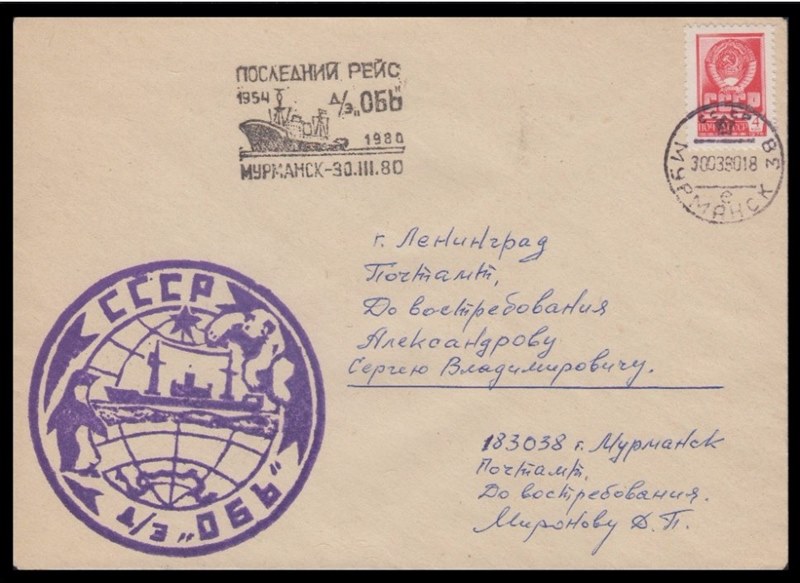 ПОСЛЕДНИЙ РЕЙС
1954 Д/Э „ОБЬ"
1980
МУРМАНСК-30.III.80
СССР
ПОЧТА
4
МУРМАНСК
30038018
е
г. Ленинград
Почтамт,
До востребования
Александрову
Сергею Владимировичу.
183038 г. Мурманск
Почтамт,
До востребования.
Миронову Д.П.
СССР
Д/Э „ОБЬ"